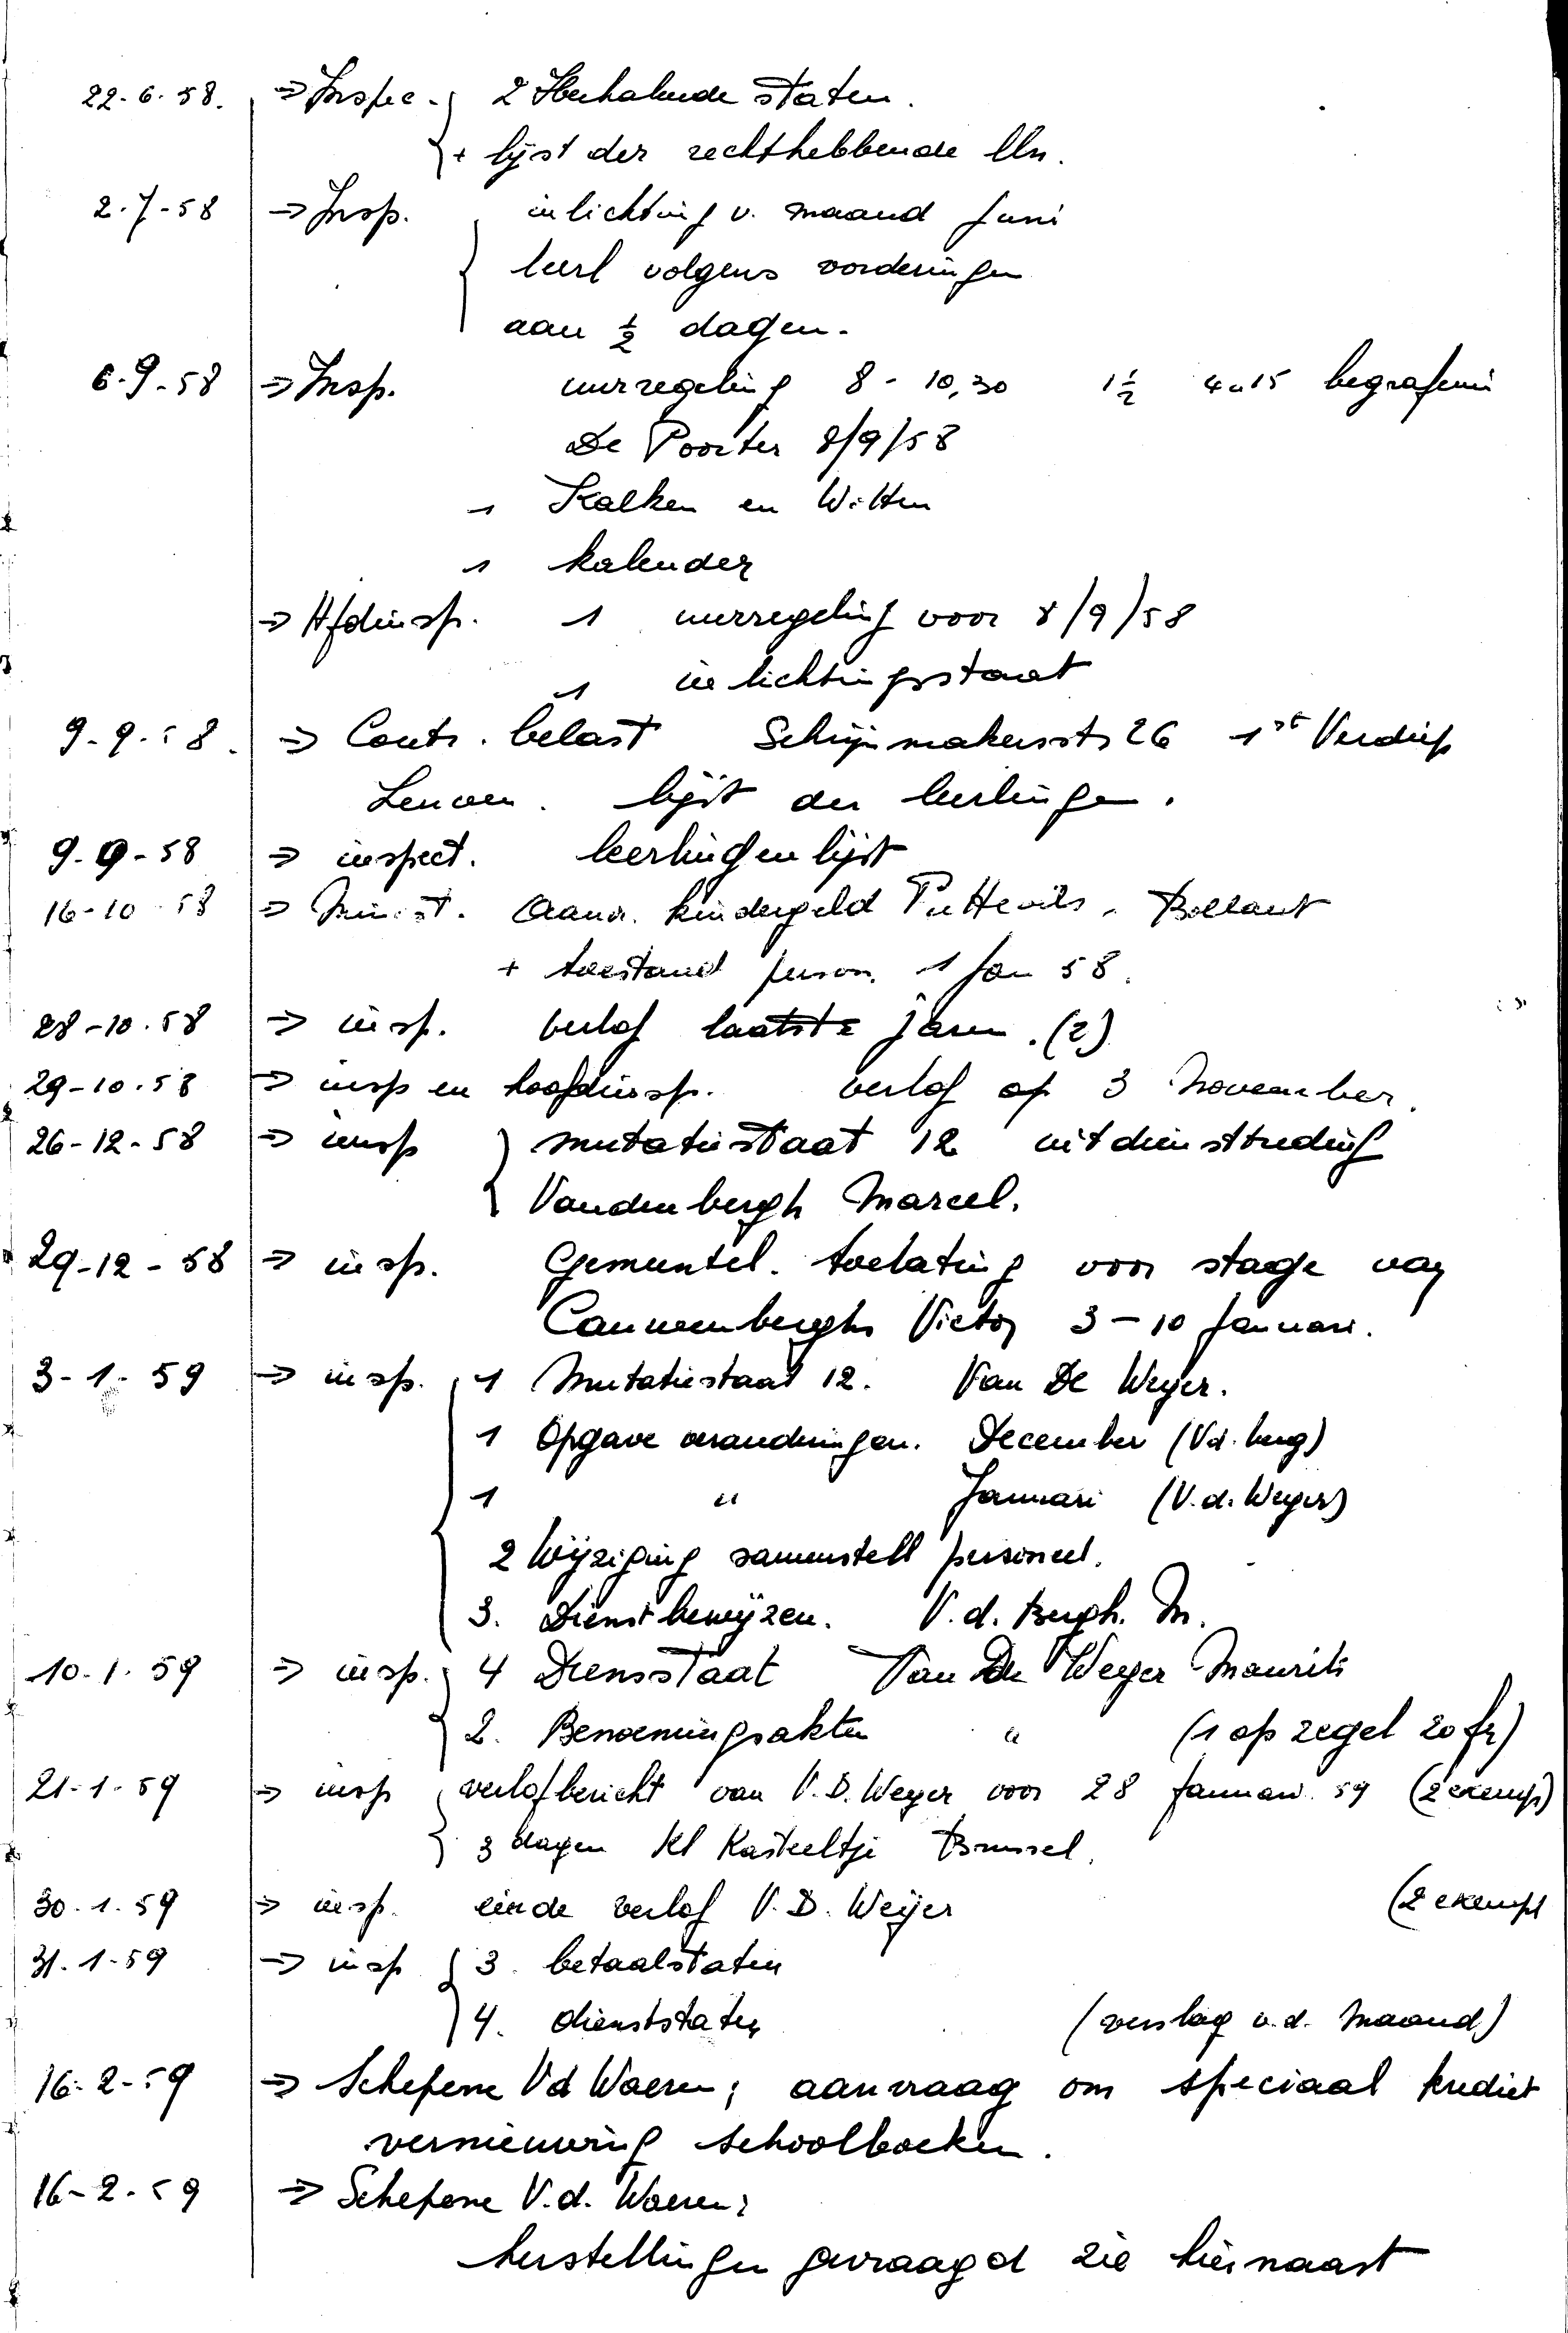 22-6-58. => Inspec. 2 Herhalende staten.
+ lijst der rechthebbende lln.
2-7-58 => Insp. inlichting v. maand Juni
leerl volgens vorderingen
aan ½ dagen.
6-9-58 => Insp. uurregeling 8 - 10,30 1½ 4u15 begrafenis
De Poorter 8/9/58
1 Kalken en Witten
1 kalender
=> Hfdinsp. 1 uurregeling voor 8/9/58
1 inlichtingsstaat
9-9-58. => Contr. belast Schrijnmakersstr 26 1ste Verdiep
Leuven. lijst der leerlingen.
9-9-58 => inspect. leerlingenlijst
16-10-58 => Minist. Aanvr. kindergeld Puttevils, Bollaert
+ toestand person. 1 Jan 58.
28-10-58 => insp. verlof laatste jaren. (2)
29-10-58 => insp en hoofdinsp. verlof op 3 November.
26-12-58 => insp mutatiestaat 12 uitdiensttreding
Vandenbergh Marcel.
29-12-58 => insp. Gemeentel. toelating voor stage van
Cauwenberghs Victor 3-10 Januari.
3-1-59 => insp. 1 Mutatiestaat 12. Van De Weyer.
1 Opgave veranderingen. December (Vd. berg)
1 " Januari (V.d. Weyer)
2 Wijziging samenstell personeel.
3. Dienstbewijzen. V.d. Bergh. M.
10-1-59 => insp. 4 Diensstaat Van De Weyer Maurits
2. Benoemingsakten " (1 op zegel 20 fr)
21-1-59 => insp verlofbericht van V.D. Weyer voor 28 Januari 59 (2 exemp)
3 dagen Kl Kasteeltje Brussel.
30.1.59 => insp. einde verlof V.D. Weijer (2 exempl
31.1-59 => insp 3. betaalstaten
4. dienststaten (verslag v.d. maand)
16-2-59 => Schepene Vd Waeren; aanvraag om speciaal krediet
vernieuwing schoolboeken.
16-2-59 => Schepene V.d. Waeren;
herstellingen gevraagd zie hiernaast